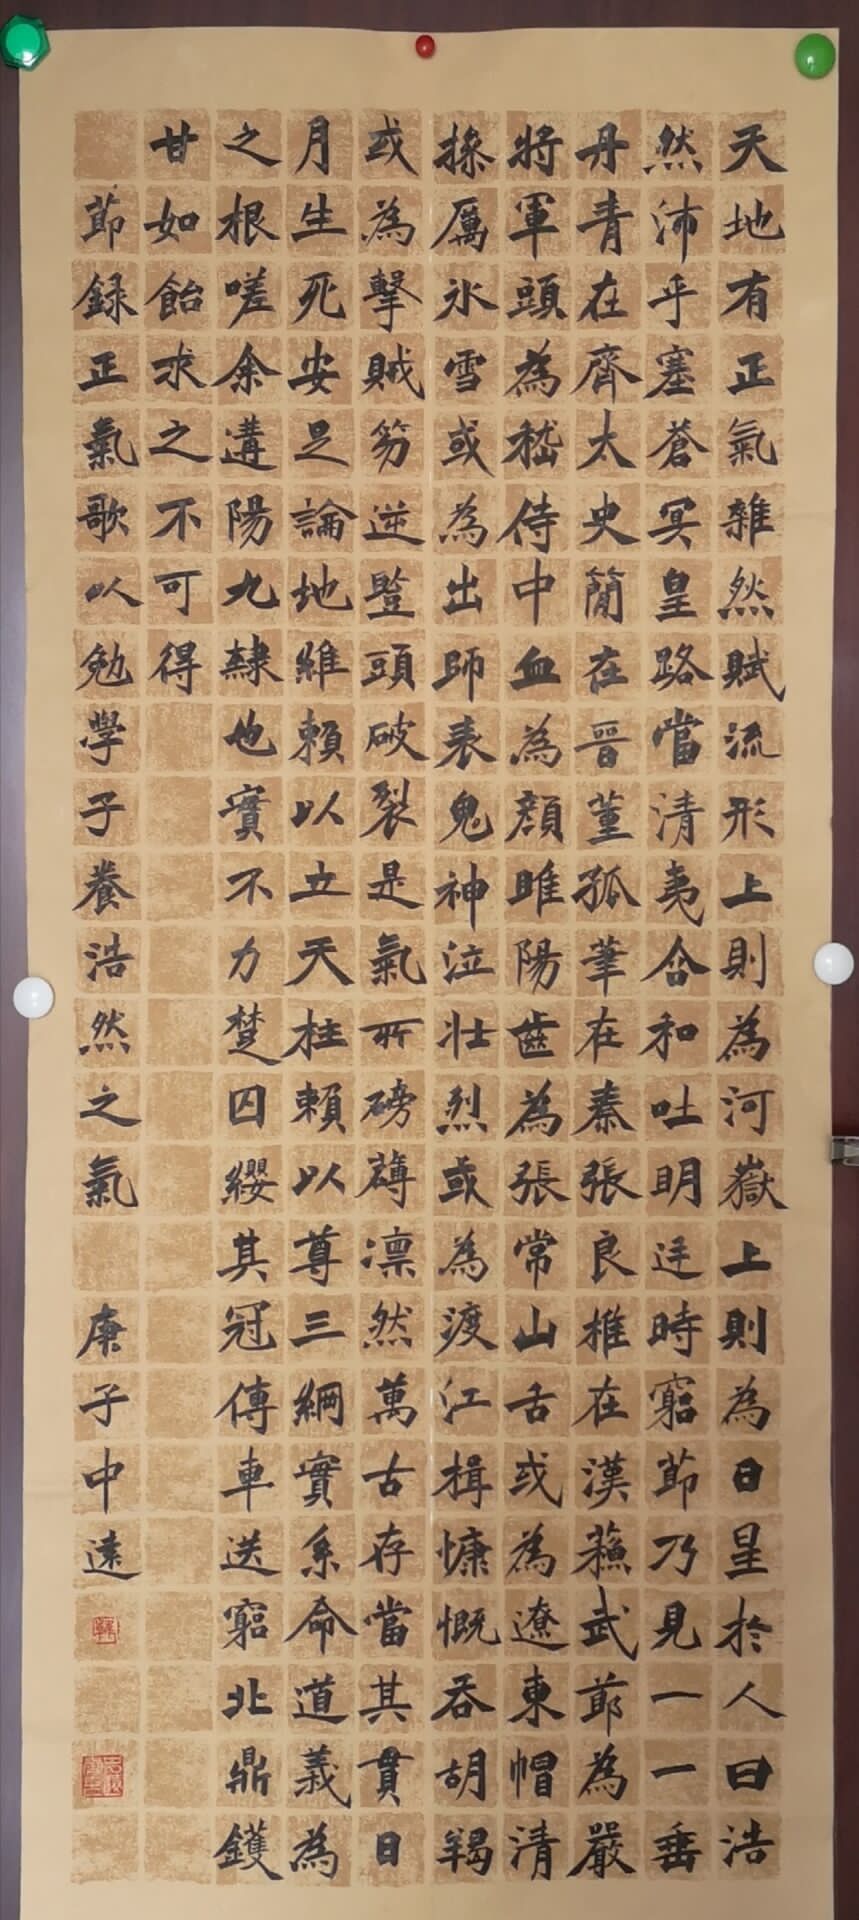 天地有正氣雜然賦流形上則為河嶽上則為日星於人曰浩
然沛乎塞蒼冥皇路當清夷含和吐明廷時窮節乃見一一垂
丹青在齊太史簡在晉董孤筆在秦張良椎在漢蘇武節為嚴
將軍頭為嵇侍中血為顏睢陽齒為張常山舌或為遼東帽清
操厲氷雪或為出師表鬼神泣壯烈或為渡江楫慷慨吞胡羯
或為擊賊笏逆豎頭破裂是氣所磅薄凛然萬古存當其貫日
月生死安足論地維賴以立天柱賴以尊三綱實系命道義為
之根嗟余遘陽九隸也實不力楚囚纓其冠傳車送窮北鼎鑊
甘如飴求之不可得
節録正氣歌以勉學子養浩然之氣 庚子中遠